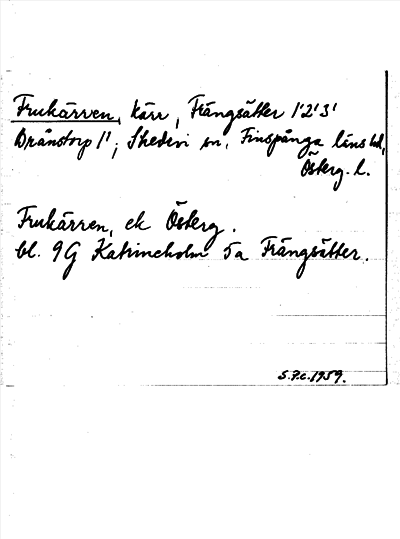 Frukärren, kärr, Frängsätter 1'2'3'
Bränstorp 1'; Skedevi sn. Finspånga läns hd,
Österg. l.
Frukärren, ek Österg.
bl. 9G Katrineholm 5a Frängsätter.
S.P.c. 1959.